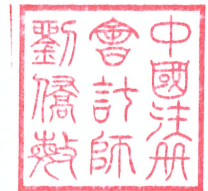 中國注册
會計師
劉僑敷